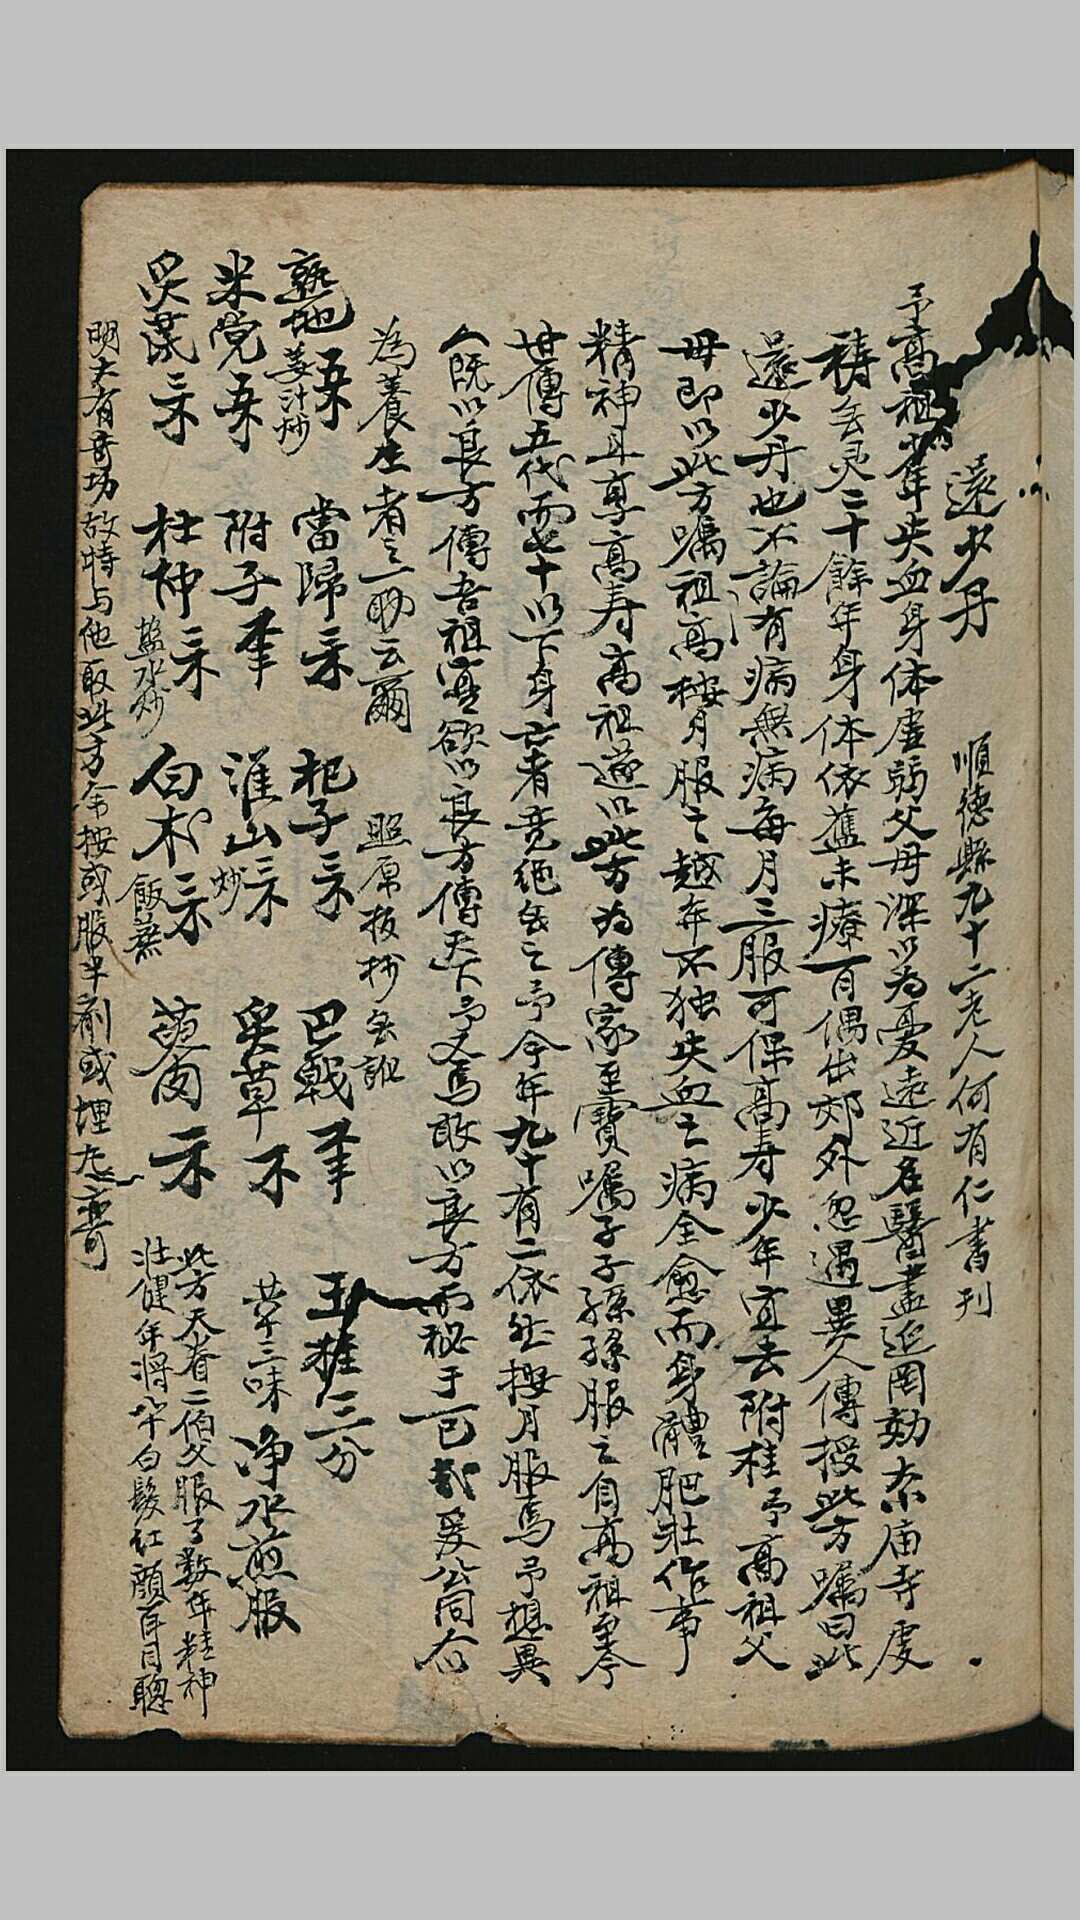 還少丹 順德縣九十二老人何有仁書刊
予高祖少年失血身体虛弱父母深以為憂遠近名醫盡延罔効奈庙寺虔
禱無灵二十餘年身体依舊未療一日偶出郊外忽遇異人傳授此方嘱曰此
還少丹也不論有病無病每月三服可保高寿少年宜去附桂予高祖父
母即以此方嘱祖高按月服之越年不独失血之病全愈而身體肥壮作事
精神且享高寿高祖遂以此方為傳家至寶嘱子子孫孫服之自高祖至今
世傳五代而七十以下身亡者竟絕無之予今年九十有二依然按月服焉予想異
人既以良方傳吾祖寔欲以良方傳天下予又焉敢以良方而秘于一己哉爰公同右
為養生者之一助云爾 照原板抄無訛
熟地 姜汁炒 當歸 杞子 巴戟 玉桂三分
米党 附子 淮山 炒 炙草 草三味 净水煎服
炙茋 杜仲 盐水炒 白朮 飯蒸 萸肉
此方天眷二伯父服了数年精神
壮健年将八十白髮红顏耳目聰
明大有奇功故特与他取此方余按或服半剤或埋